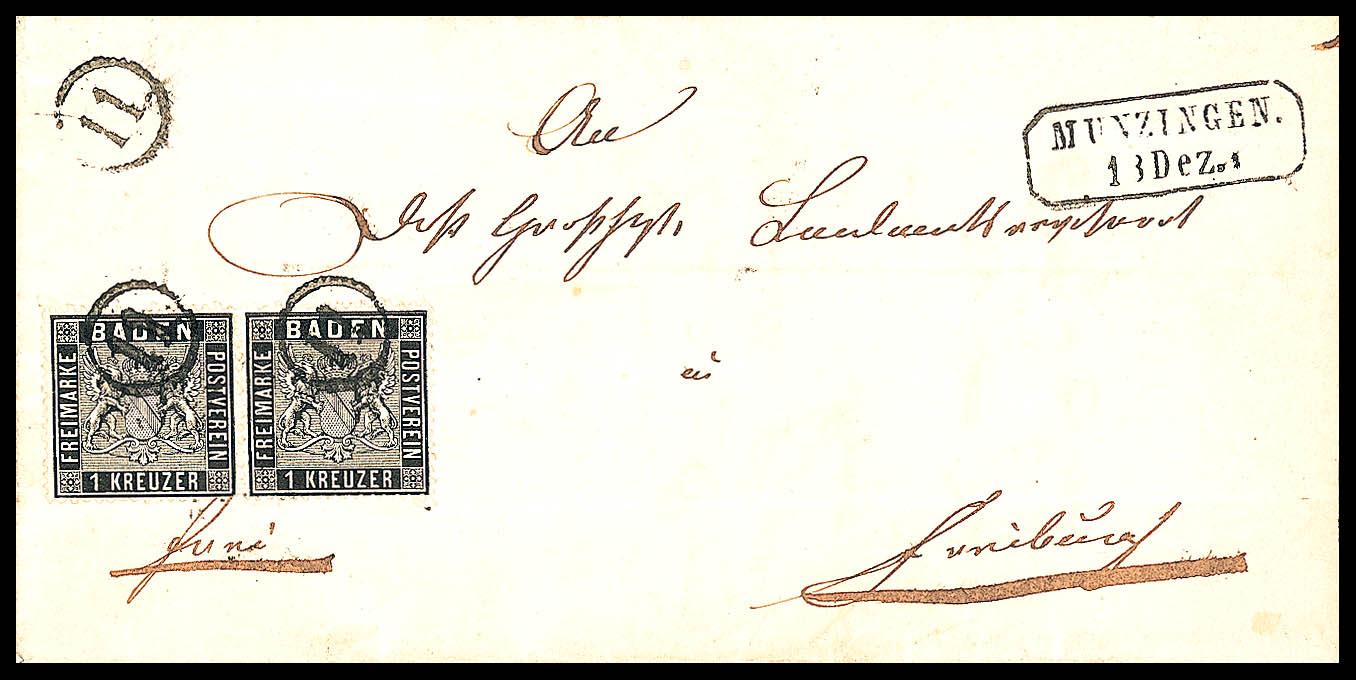 11.
MUNZINGEN.
13 Dez.
An
das Großhzl. Landamtsrevisorat
in
BADEN
FREIMARKE
POSTVEREIN
1 KREUZER
BADEN
FREIMARKE
POSTVEREIN
1 KREUZER
frei
Freiburg